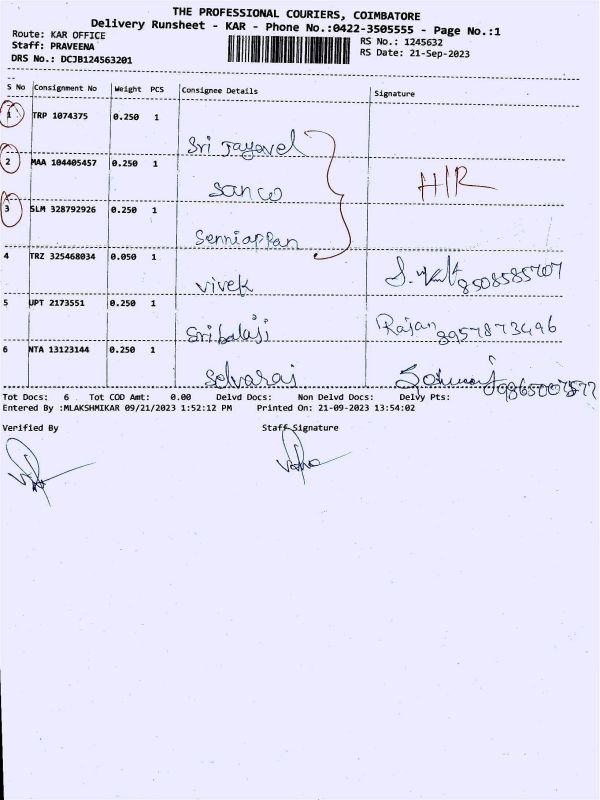 THE PROFESSIONAL COURIERS, COIMBATORE
Delivery Runsheet - KAR - Phone No.:0422-3505555 - Page No.:1
Route: KAR OFFICE RS No.: 1245632
Staff: PRAVEENA RS Date: 21-Sep-2023
DRS No.: DCJB124563201
S No Consignment No Weight PCS Consignee Details Signature
1 TRP 1074375 0.250 1
Sri Jayavel
2 MAA 104405457 0.250 1
Sanco H/R
3 SLM 328792926 0.250 1
Senniappan
4 TRZ 325468034 0.050 1
Vivek 8508585707
5 UPT 2173551 0.250 1
Sribalaji Rajan 8957873496
6 NTA 13123144 0.250 1
Selvaraj
Tot Docs: 6 Tot COD Amt: 0.00 Delvd Docs: Non Delvd Docs: Delvy Pts:
Entered By :MLAKSHMIKAR 09/21/2023 1:52:12 PM Printed On: 21-09-2023 13:54:02
Verified By Staff Signature